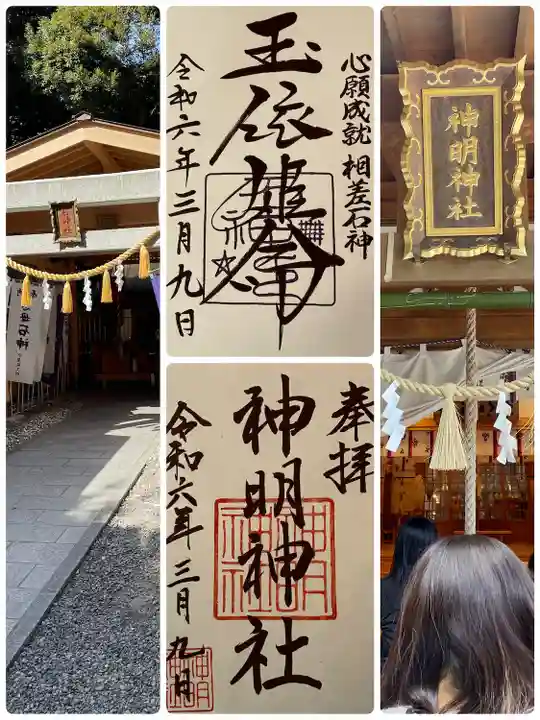 石神
心願成就 相差石神
玉依姫命
令和六年三月九日
奉拝
神明神社
令和六年三月九日
神明神社